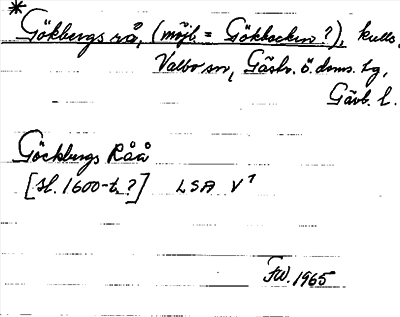 * Gökbergs rå, (möjl. = Gökbacken?), kulle,
Valbo sn, Gästr. ö. doms. tg,
Gävb. l.
Göckbergs Råå
[sl. 1600-t.?] LSA V⁷
FW. 1965